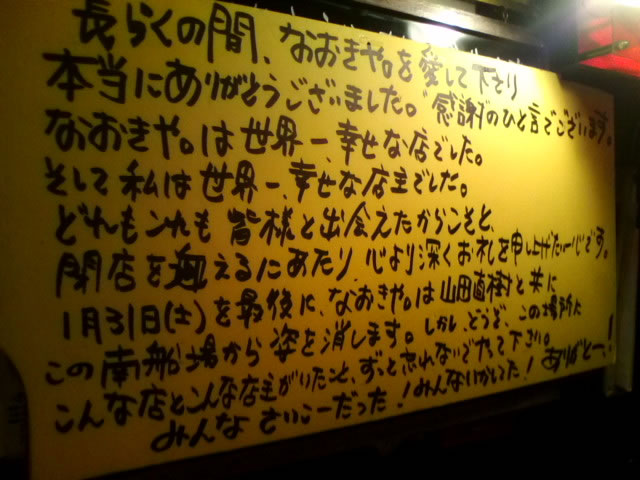 長らくの間、なおきや。を愛して下さり
本当にありがとうございました。感謝のひと言でございます。
なおきや。は世界一、幸せな店でした。
そして私は世界一、幸せな店主でした。
どれもこれも皆様と出会えたからこそと、
閉店を迎えるにあたり心より深くお礼を申し上げたい一心です。
1月31日(土)を最後に、なおきや。は山田直樹と共に
この南船場から姿を消します。しかし、どうぞ、この場所に
こんな店とこんな店主がいたこと、ずっと忘れないでやって下さい。
みんなさいこーだった!みんないかしてた!ありがとー、!